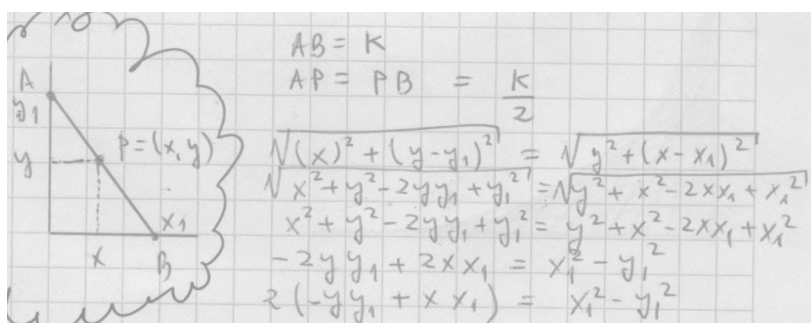 AB = K
AP = PB = K/2
A
y₁
y
P=(x, y)
x₁
x
B
√((x)² + (y-y₁)²) = √(y² + (x-x₁)²)
√(x² + y² - 2yy₁ + y₁²) = √(y² + x² - 2xx₁ + x₁²)
x² + y² - 2yy₁ + y₁² = y² + x² - 2xx₁ + x₁²
-2yy₁ + 2xx₁ = x₁² - y₁²
2(-yy₁ + xx₁) = x₁² - y₁²